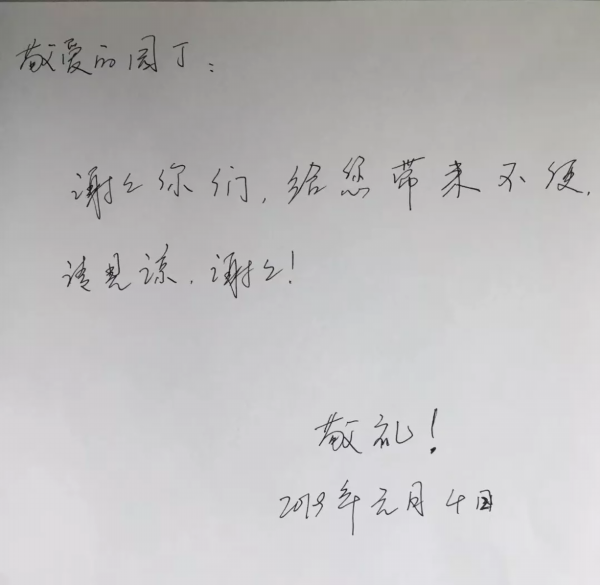 敬爱的园丁：
谢谢你们，给您带来不便，
请见谅，谢谢！
敬礼！
2019年元月4日